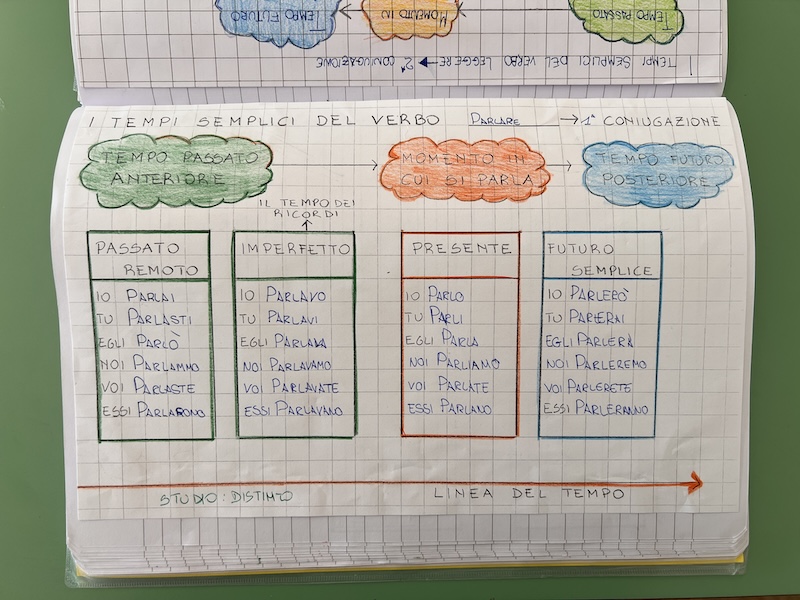 TEMPO FUTURO
MOMENTO IN
TEMPO PASSATO
I TEMPI SEMPLICI DEL VERBO LEGGERE → 2ª CONIUGAZIONE
I TEMPI SEMPLICI DEL VERBO PARLARE → 1ª CONIUGAZIONE
TEMPO PASSATO
ANTERIORE
MOMENTO IN
CUI SI PARLA
TEMPO FUTURO
POSTERIORE
IL TEMPO DEI
RICORDI
PASSATO
REMOTO
IO PARLAI
TU PARLASTI
EGLI PARLÒ
NOI PARLAMMO
VOI PARLASTE
ESSI PARLARONO
IMPERFETTO
IO PARLAVO
TU PARLAVI
EGLI PARLAVA
NOI PARLAVAMO
VOI PARLAVATE
ESSI PARLAVANO
PRESENTE
IO PARLO
TU PARLI
EGLI PARLA
NOI PARLIAMO
VOI PARLATE
ESSI PARLANO
FUTURO
SEMPLICE
IO PARLERÒ
TU PARLERAI
EGLI PARLERÀ
NOI PARLEREMO
VOI PARLERETE
ESSI PARLERANNO
STUDIO: DISTINTO
LINEA DEL TEMPO